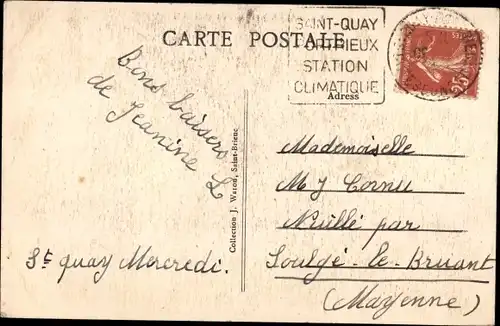 CARTE POSTALE
SAINT-QUAY
PORTRIEUX
STATION
CLIMATIQUE
Adress
25c
Bons baisers
de Jeanine L
St quay Mercredi.
Collection J. Waron, Saint-Brieuc
Mademoiselle
M J Cornu
Nuillé par
Soulgé-le-Bruant
(Mayenne)